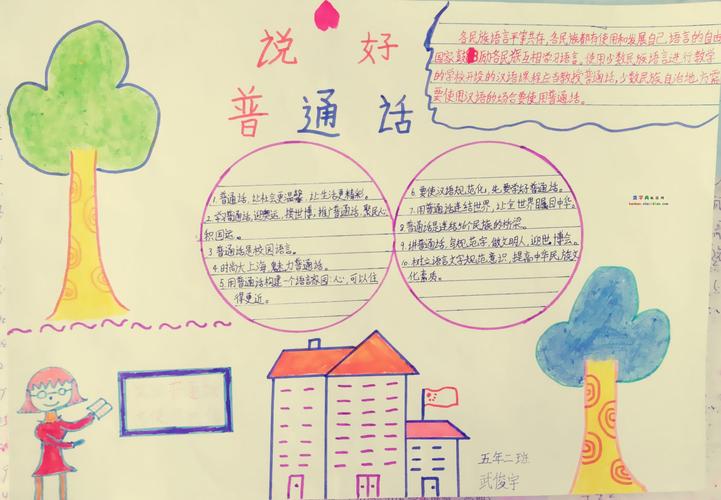 说好
普通话
各民族语言平等共存,各民族都有使用和发展自己语言的自由
国家鼓励各民族互相学习语言,使用少数民族语言进行教学
的学校开设的汉语课程应当教授普通话,少数民族自治地方需
要使用汉语的场合要使用普通话。
1.普通话,让社会更温馨,让生活更精彩。
2.学习普通话,迎奥运,接世博,推广普通话,聚民心,
积国运。
3.普通话是校园语言。
4.时尚大上海,魅力普通话。
5.用普通话构建一个语言家园“心”可以住
得更近。
6.要使汉语规范化,先要学好普通话。
7.用普通话连结世界,让全世界瞩目中华。
8.普通话是连结56个民族的桥梁。
9.讲普通话,写规范字,做文明人,迎世博会。
10.树立语言文字规范意识,提高中华民族文
化素质。
五年二班
武俊宇